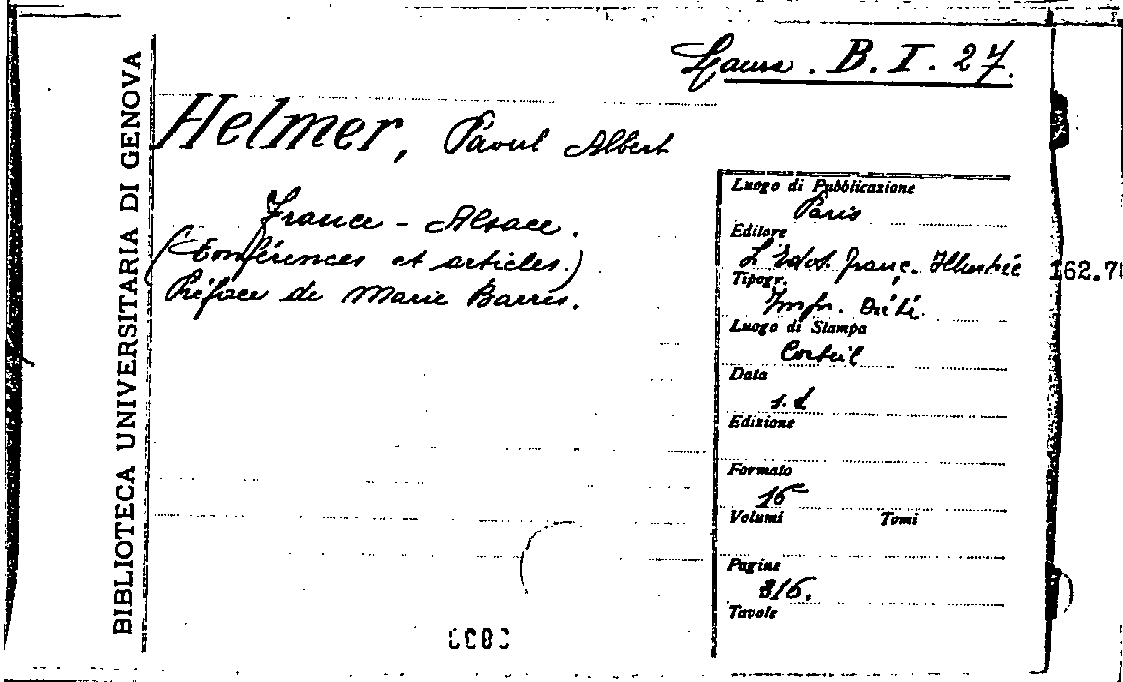 Laura. B. I. 27.
BIBLIOTECA UNIVERSITARIA DI GENOVA
Helmer, Paoul Albert
France - Alsace.
(Conférences et articles.)
Préface de Marie Barrès.
Luogo di Pubblicazione
Paris
Editore
L'Edot. franç. Illustrée
162.7
Tipogr.
Impr. Crété.
Luogo di Stampa
Corbeil
Data
s. d
Edizione
Formato
16°
Volumi Tomi
Pagine
316.
Tavole